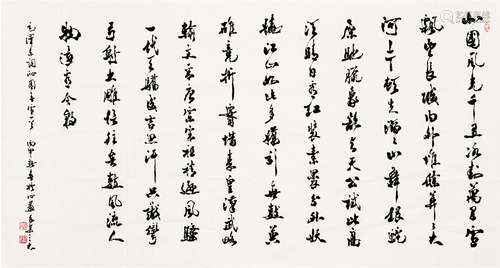 北國風光千里冰封萬里雪
飄望長城内外惟餘莽莽大
河上下頓失滔滔山舞銀蛇
原馳臘象欲與天公試比高
須晴日看紅裝素裹分外妖
嬈江山如此多嬌引無數英
雄競折腰惜秦皇漢武略
輸文采唐宗宋祖稍遜風騷
一代天驕成吉思汗只識彎
弓射大雕俱往矣數風流人
物還看今朝
毛澤東詞沁園春雪一首 丙申